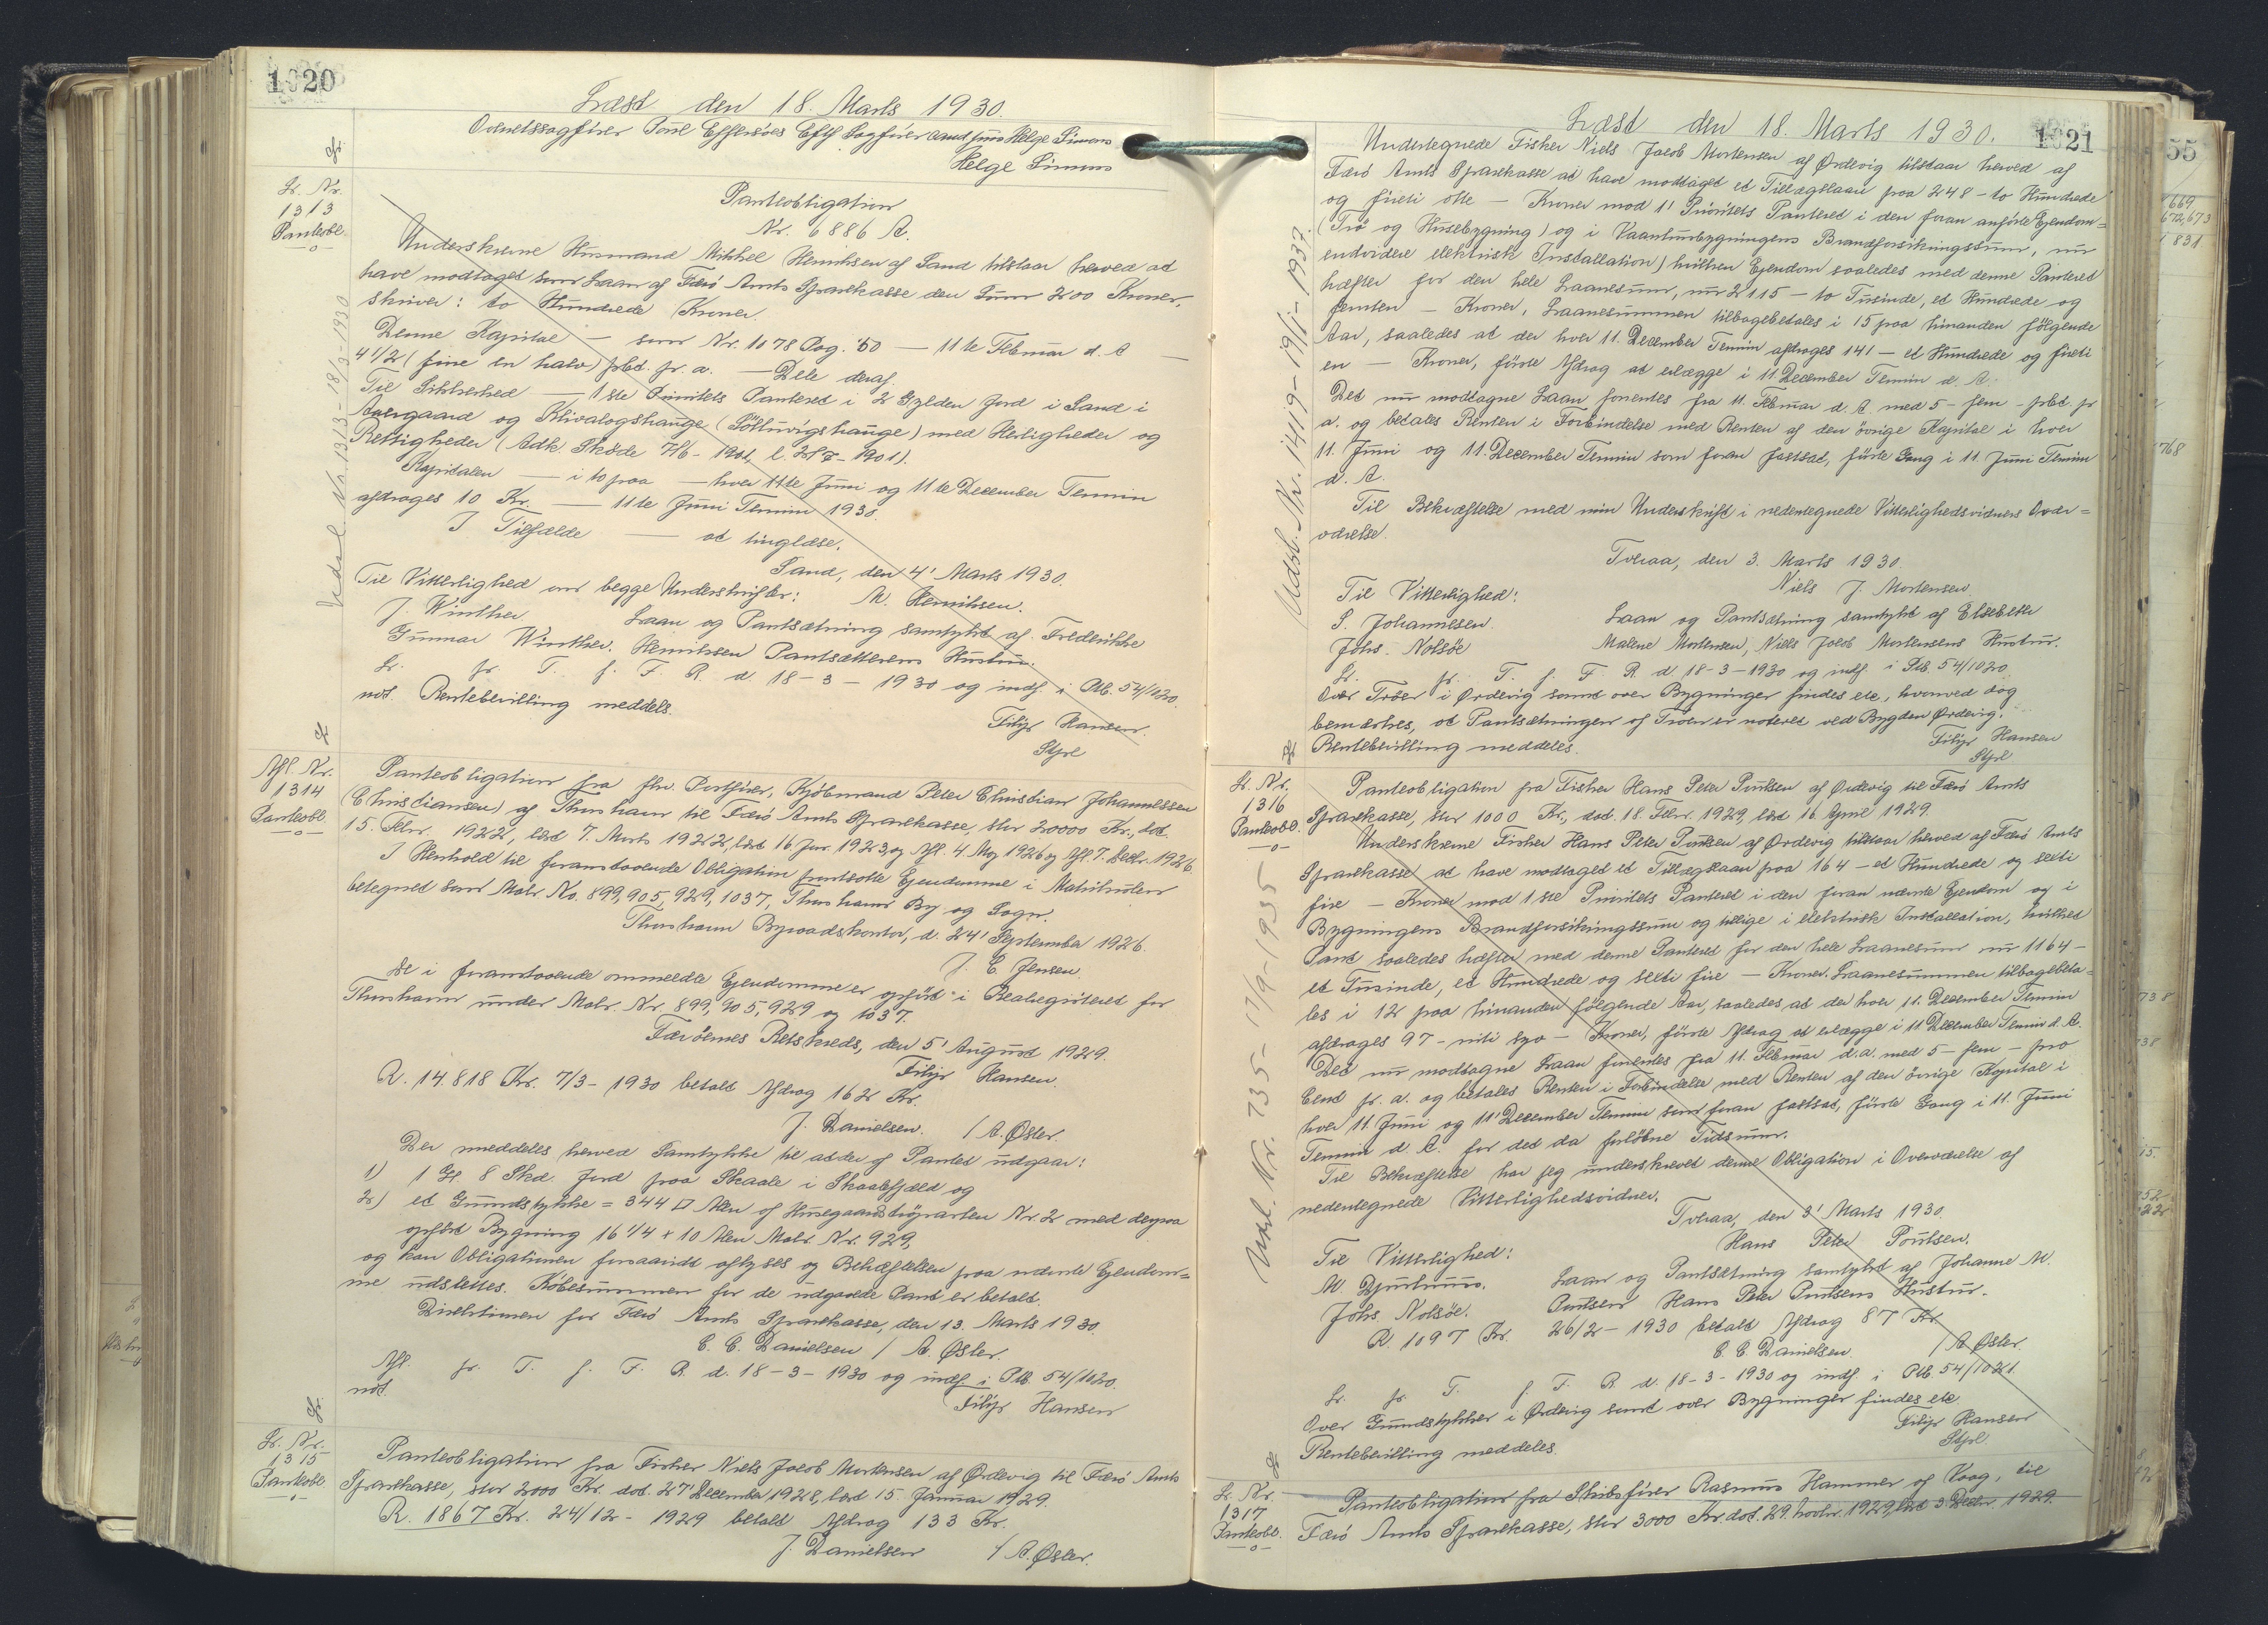 1020
Læst den 18. Marts 1930.
Overretssagfører Poul Effersøes Eftf Sagfører cand juris Helge Simons
Helge Simons
Lr. Nr.
1313
Panteobl.
Pantobligation
Nr. 6886 A.
Underskrevne Husmand Mikkel Henriksen af Sand tilstaar herved at
have modtaget som Laan af Færø Amts Sparekasse den Sum 200 Kroner,
skriver: to Hundrede Kroner.
Denne Kapital — som Nr. 1078 Pag. 50 — 11te Februar d. A —
4 1/2 (fire en halv) pCt. pr. a. — Dele deraf.
Til Sikkerhed — 1ste Prioritets Panteret i 2 Gylden Jord i Sand i
og (Søltuvigshauge) med Herligheder og
Rettigheder (Adk. Skøde 1901).
Kapitalen — i to paa — hver 11te Juni og 11te December Termin
afdrages 10 Kr. — 11te Juni Termin 1930.
I Tilfælde — at tinglæse.
Sand, den 4' Marts 1930.
Til Vitterlighed om begge Underskrifter: M. Henriksen.
J. Winther Laan og Pantsætning samtykt af Frederikke
Gunnar Winther. Henriksen Pantsætterens Hustru.
Lr. pr. T. f. F. R. d. 18-3-1930 og indf. i Ptb. 54/1020.
not Rentebevilling meddels.
Filip Hansen.
Stpl
Udsl. Nr. 1313 - 18/3-1930
Afl. Nr.
1314
Panteobl.
Panteobligation fra fhv. Postfører, Kjøbmand Peter Christian Johannessen
(Christiansen) af Thorshavn til Færø Amts Sparekasse, stor 20000 Kr., dat.
15. Febr. 1922, læst 7. Marts 1922, læst 16 Jan. 1923, og Afl. 4. Maj 1926 og Afl. 7. Decbr. 1926.
I Henhold til foranstaaende Obligation pantsatte Ejendomme i Matrikulen
betegnet som Matr. No. 899, 905, 929, 1037, Thorshavns By og Sogn.
Thorshavn Byraadskontor, d. 24' September 1926.
J. C. Jensen.
De i foranstaaende ommeldte Ejendomme er opført i Realregisteret for
Thorshavn under Matr. Nr. 899, 905, 929 og 1037.
Færøernes Retskreds, den 5' August 1929.
Filip Hansen.
R. 14.818 Kr. 7/3-1930 betalt Afdrag 162 Kr.
J. Danielsen. / A. Øster.
Der meddeles herved Samtykke til at der af Pantet udgaar:
1) 1 Gl. 8 Skd. Jord paa Skaale i Skaalefjæld og
2) et Grundstykke = 344 □ Alen af Husegaards Nr. 2 med derpaa
opført Bygning 16 1/4 x 10 Alen Matr. Nr. 929,
og kan Obligationen forsaavidt aflyses og Behæftelsen paa nævnte Ejendom=
me udslettes. Købesummen for de udgaaede Pant er betalt.
Direktionen for Færø Amts Sparekasse, den 13. Marts 1930.
C. C. Danielsen / A. Øster.
Afl. pr. T. f. F. R. d. 18-3-1930 og indf. i Ptb. 54/1020.
not.
Filip Hansen
Lr. Nr.
1315
Panteobl.
Panteobligation fra Fisker Niels Jacob Mortensen af Ørdevig til Færø Amts
Sparekasse, stor 2000 Kr. dat. 27' December 1928, læst 15. Januar 1929.
R. 1867 Kr. 24/12-1929 betalt Afdrag 133 Kr.
J. Danielsen / A. Øster.
Læst den 18. Marts 1930.
1021
Undertegnede Fisker Niels Jacob Mortensen af Ørdevig tilstaar herved af
Færø Amts Sparekasse at have modtaget et Tillægslaan paa 248 - to Hundrede
og fireti otte - Kroner mod 1' Prioritets Panteret i den foran anførte Ejendom=
(Trø og Husebygning) og i Vaanhusbygningens Brandforsikringssum, nu
endvidere elektrisk Installation) hvilken Ejendom saaledes med denne Panteret
hæfter for den hele Laanesum, nu 2115 - to Tusinde, et Hundrede og
femten - Kroner, Laanesummen tilbagebetales i 15 paa hinanden følgende
Aar, saaledes at der hver 11. December Termin afdrages 141 - et Hundrede og fireti
en - Kroner, første Afdrag at erlægge i 11. December Termin d. A.
Det nu modtagne Laan forrentes fra 11. Februar d. A. med 5 - fem - pCt. pr
a. og betales Renten i Forbindelse med Renten af den øvrige Kapital i hver
11. Juni og 11. December Termin som foran fastsat, første Gang i 11. Juni Termin
d. A.
Til Bekræftelse med min Underskrift i nedentegnede Vitterlighedsvidners Over=
værelse.
Tveraa, den 3. Marts 1930.
Til Vitterlighed: Niels J. Mortensen
S. Johannesen. Laan og Pantsætning samtykt af Elsebeth
Johs. Nolsøe Malene Mortensen, Niels Jacob Mortensens Hustru.
Lr. pr. T. f. F. R. d 18-3-1930 og indf. i Ptb. 54/1020.
Over Trøer i Ørdevig samt over Bygninger findes etc, hvorved dog
bemærkes, at Pantsætningen af Trøen er noteret ved Bygden Ørdevig.
Rentebevilling meddeles.
Filip Hansen
Stpl
Udsl. Nr. 1419 - 19/1-1937.
Lr. Nr.
1316
Panteobl.
Panteobligation fra Fisker Hans Peter Poulsen af Ørdevig til Færø Amts
Sparekasse, stor 1000 Kr., dat. 18. Febr. 1929, læst 16 April 1929.
Underskrevne Fisker Hans Peter Poulsen af Ørdevig tilstaar herved af Færø Amts
Sparekasse at have modtaget et Tillægslaan paa 164 - et Hundrede og seksti
fire - Kroner mod 1ste Prioritets Panteret i den foran nævnte Ejendom og i
Bygningens Brandforsikringssum og tillige i elektrisk Installation, hvilket
Pant saaledes hæfter med denne Panteret for den hele Laanesum nu 1164 -
et Tusinde, et Hundrede og seksti fire - Kroner. Laanesummen tilbagebeta=
les i 12 paa hinanden følgende Aar, saaledes at der hver 11. December Termin
afdrages 97 - niti syv - Kroner, første Afdrag at erlægge i 11. December Termin d. A.
Det nu modtagne Laan forrentes fra 11. Februar d.a. med 5 - fem - pro
Cent pr. a. og betales Renten i Forbindelse med Renten af den øvrige Kapital i
hver 11. Juni og 11' December Termin som foran fastsat, første Gang i 11. Juni
Termin d. A. for det da forløbne Tidsrum.
Til Bekræftelse har jeg underskrevet denne Obligation i Overværelse af
nedentegnede Vitterlighedsvidner.
Tveraa, den 3' Marts 1930.
Til Vitterlighed: Hans Peter Poulsen.
M. Djurhuus. Laan og Pantsætning samtykt af Johanne M.
Johs. Nolsøe. Poulsen Hans Peter Poulsens Hustru.
R. 1097 Kr. 26/2-1930 betalt Afdrag 87 Kr
C. C. Danielsen. / A. Øster.
Lr. pr. T. f. F. R. d. 18-3-1930 og indf. i Ptb. 54/1021.
Over Grundstykker i Ørdevig samt over Bygninger findes etc
Rentebevilling meddeles.
Filip Hansen
Stpl
Udsl. Nr. 735 - 17/9-1935
Lr. Nr.
1317
Panteobl.
Panteobligation fra Skibsfører Rasmus Hammer af Vaag, til
Færø Amts Sparekasse, stor 3000 Kr. dat. 29. Novbr. 1929, læst 3 Decbr. 1929.
55
669
672,673
831
768
738
738
15.